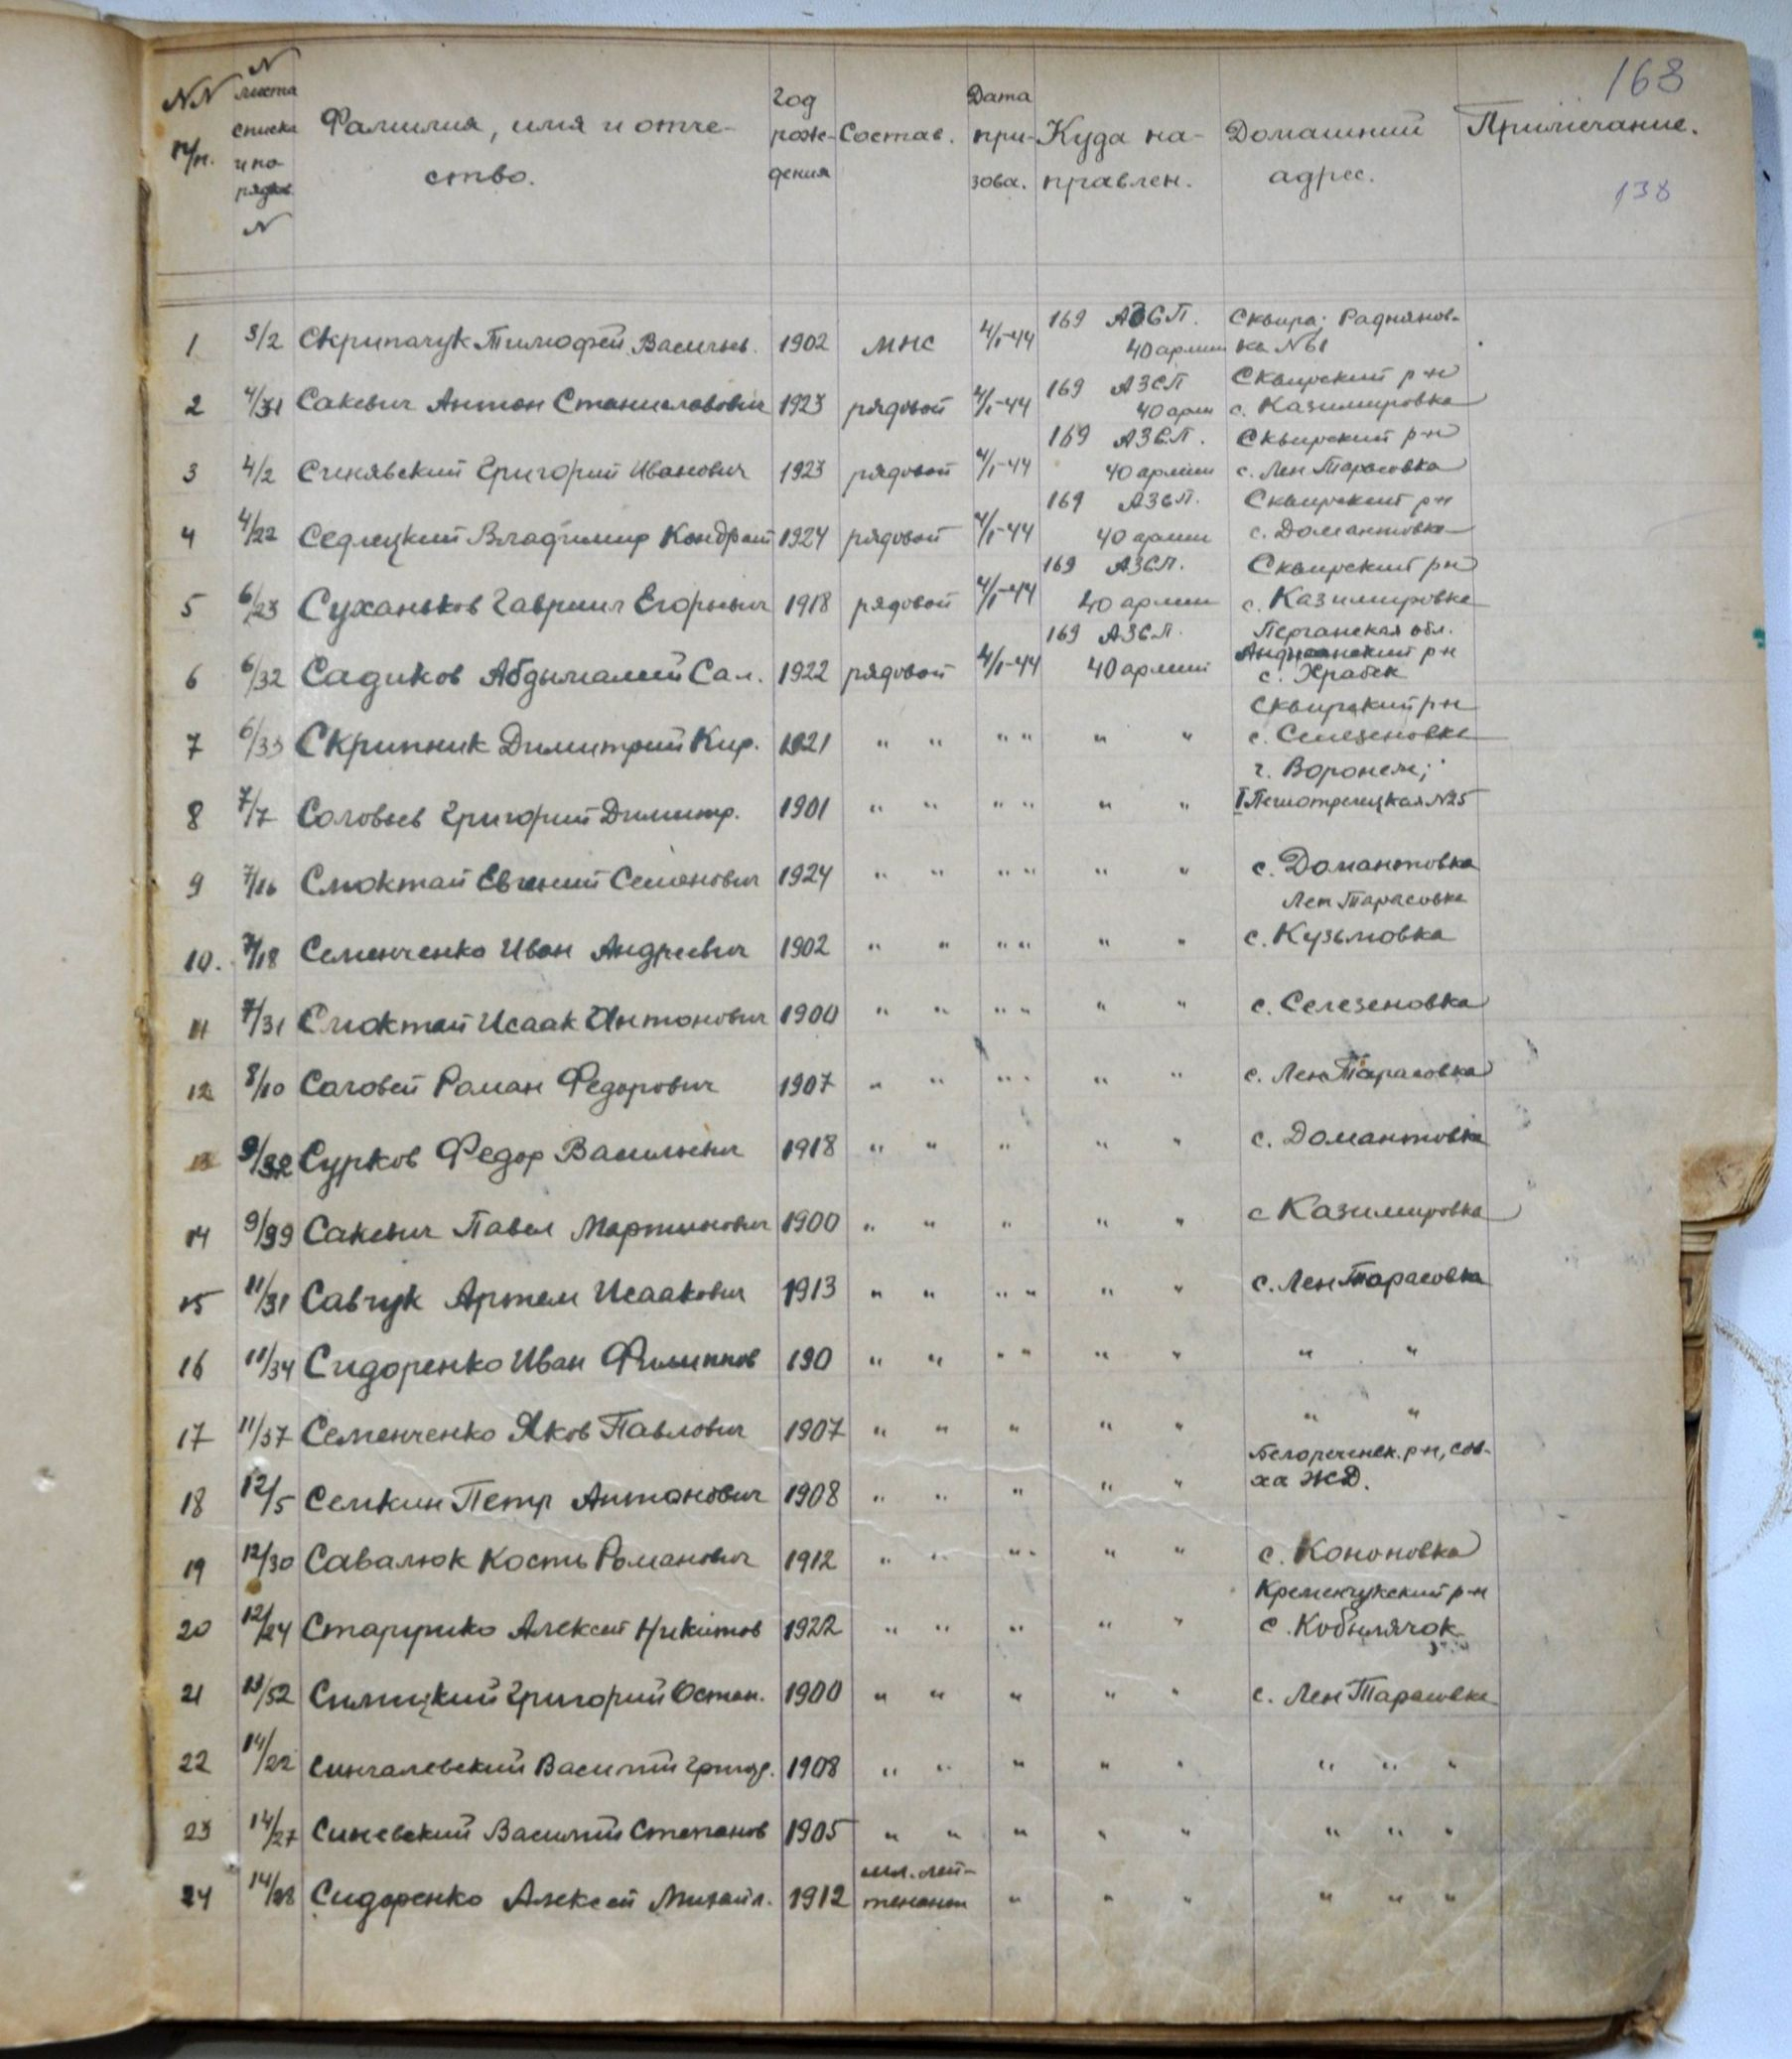 168
138
NN п/п. | N листа списка и по рядков N | Фамилия, имя и отче-ство. | Год рож-дения | Состав. | Дата при-зова. | Куда на-правлен. | Домашний адрес. | Примечание.
1 3/2 Скрипачук Тимофей Васильев. 1902 мнс 4/I-44 169 АЗСП. 40 армии Сквира; Раднянов-ка №61
2 4/31 Сакевич Антон Станиславович 1923 рядовой 4/I-44 169 АЗСП 40 арм Сквирский р-н с. Казимировка
3 4/2 Синявский Григорий Иванович 1923 рядовой 4/I-44 169 АЗСП. 40 армии Сквирский р-н с. Лен Тарасовка
4 4/22 Седлецкий Владимир Кондрат 1924 рядовой 4/I-44 169 АЗСП. 40 армии Сквирский р-н с. Домантовка
5 6/23 Суханьков Гавриил Егорьевич 1918 рядовой 4/I-44 169 АЗСП. 40 армии Сквирский р-н с. Казимировка
6 6/32 Садиков Абдымалий Сал. 1922 рядовой 4/I-44 169 АЗСП. 40 армии Ферганская обл. Андижанский р-н с. Храбек
7 6/33 Скрипник Димитрий Кир. 1921 " " " " " " Сквирский р-н с. Селезеновка
8 7/7 Соловьев Григорий Димитр. 1901 " " " " " " г. Воронеж; №25
9 7/16 Слюктай Евгений Семенович 1924 " " " " " " с. Домантовка
10. 7/18 Семенченко Иван Андреевич 1902 " " " " " " Лен Тарасовка с. Кузьмовка
11 7/31 Слюктай Исаак Антонович 1900 " " " " " " с. Селезеновка
12 8/10 Соловей Роман Федорович 1907 " " " " " " с. Лен Тарасовка
13 9/32 Сурков Федор Васильевич 1918 " " " " " с. Домантовка
14 9/39 Сакевич Павел Мартинович 1900 " " " " " с Казимировка
15 11/31 Савчук Артем Исаакович 1913 " " " " " " с. Лен Тарасовка
16 11/34 Сидоренко Иван Филиппов 190 " " " " " " " "
17 11/37 Семенченко Яков Павлович 1907 " " " " " " "
18 12/5 Семкин Петр Антонович 1908 " " " " " Белореченск. р-н, сов-ха ЖД.
19 12/30 Савалюк Кость Романович 1912 " " " " " " с. Кононовка
20 12/24 Старушко Алексей Никитов 1922 " " " " " Кременчужский р-н с. Кобылячок
21 13/52 Силицкий Григорий Остап. 1900 " " " " " с. Лен Тарасовка
22 14/22 Сингалевский Василий Григор. 1908 " " " " " " " "
23 14/27 Синевский Василий Степанов 1905 " " " " " " " "
24 14/28 Сидоренко Алексей Михайл. 1912 мл. лей-тенант " " " " " "